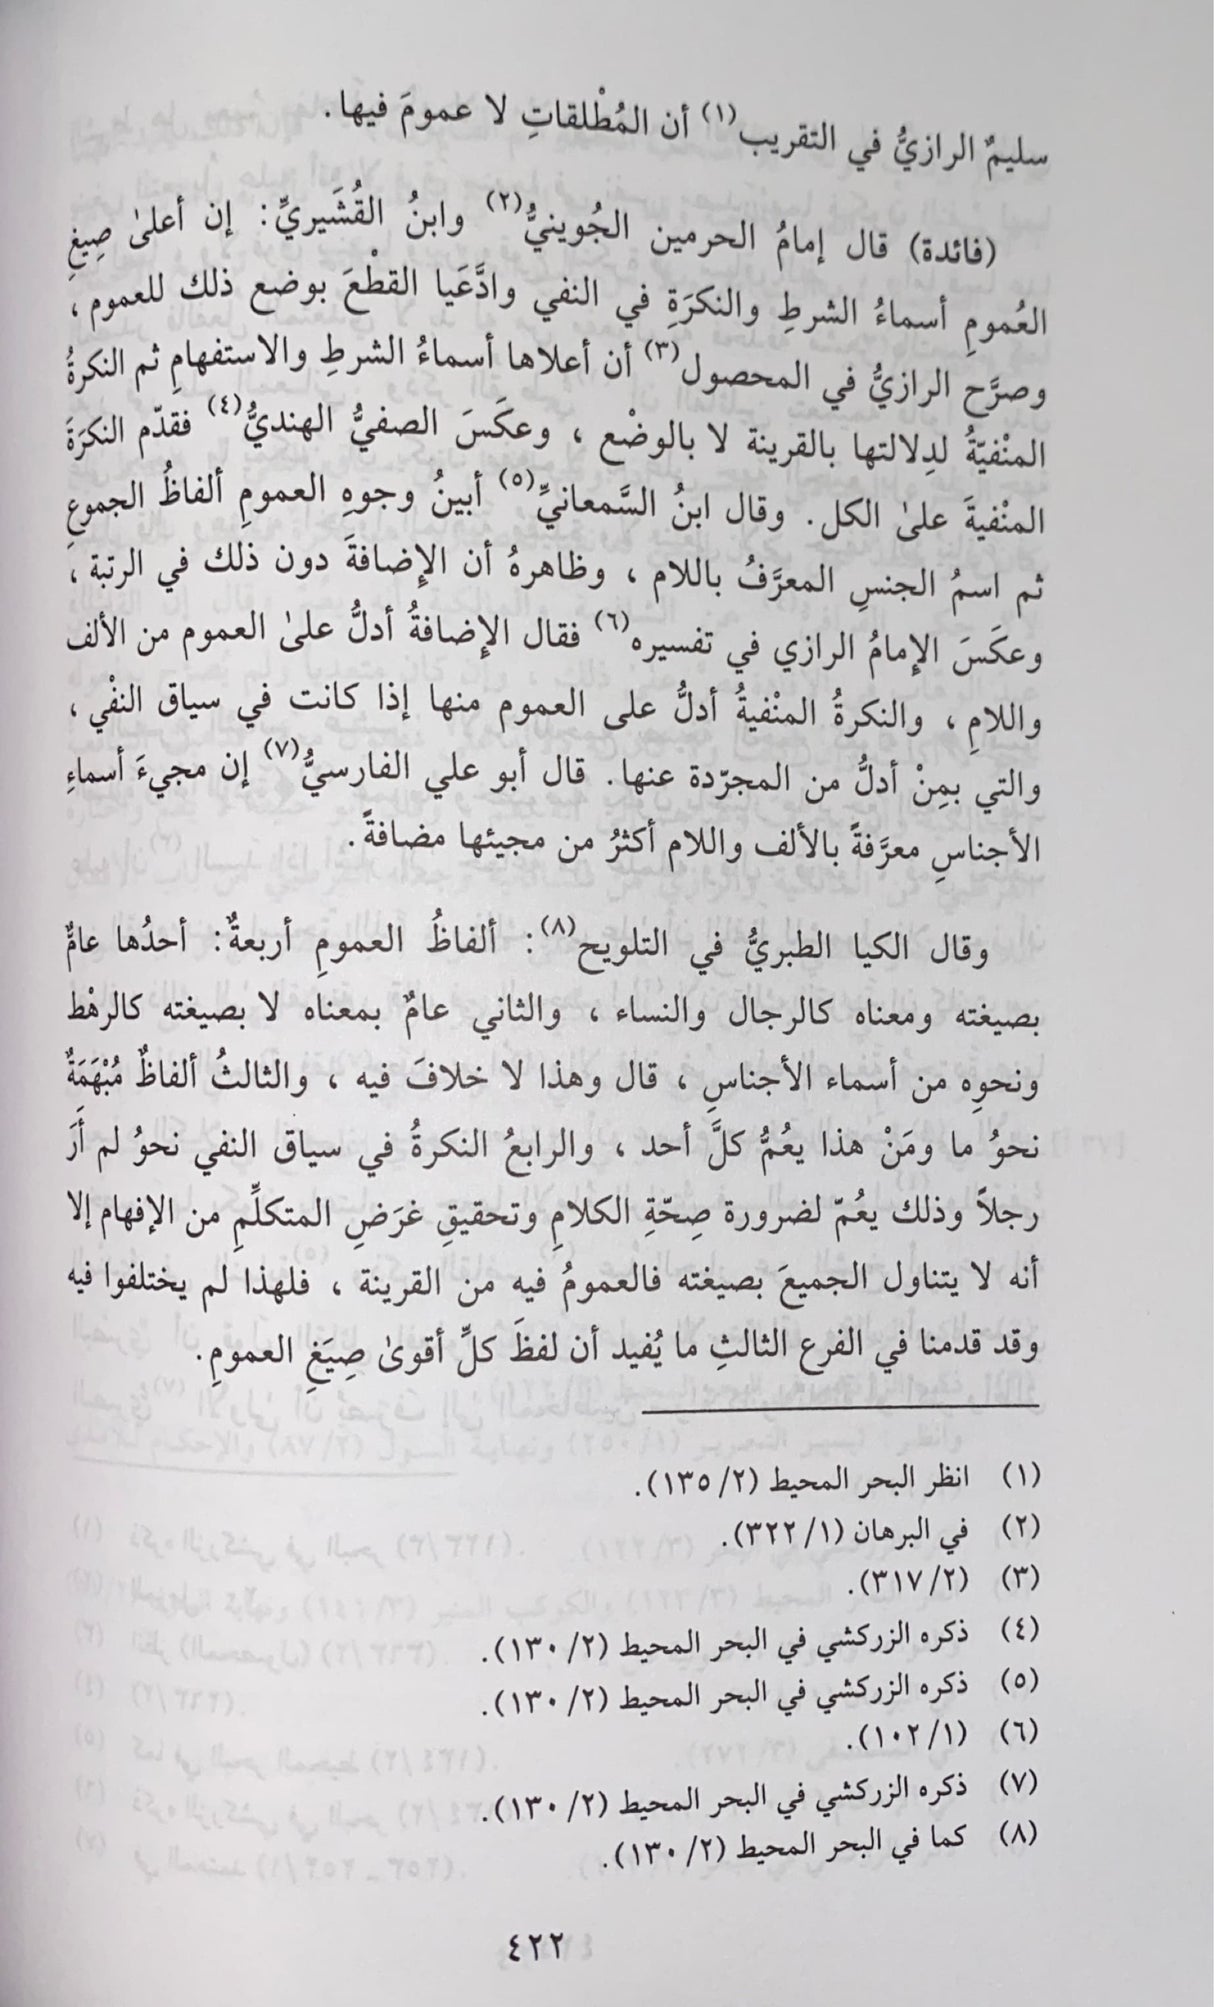 سليمٌ الرازيُّ في التقريب(١) أن المُطْلقاتِ لا عمومَ فيها.
(فائدة) قال إمامُ الحرمين الجُوينيُّ(٢) وابنُ القُشَيريِّ: إن أعلىٰ صِيغِ
العُمومِ أسماءُ الشرطِ والنكرَةِ في النفي وادَّعَيا القطْعَ بوضع ذلك للعموم ،
وصرَّح الرازيُّ في المحصول(٣) أن أعلاها أسماءُ الشرطِ والاستفهامِ ثم النكرةُ
المنْفيّةُ لدِلالتها بالقرينة لا بالوضْع ، وعكَسَ الصفيُّ الهنديُّ(٤) فقدّم النكرَةَ
المنْفيةَ علىٰ الكل. وقال ابنُ السَّمعانيِّ(٥) أبينُ وجوهِ العمومِ ألفاظُ الجموعِ
ثم اسمُ الجنسِ المعرَّفُ باللام ، وظاهرهُ أن الإضافةَ دون ذلك في الرتبة ،
وعكَسَ الإمامُ الرازي في تفسيره(٦) فقال الإضافةُ أدلُّ علىٰ العموم من الألف
واللامِ ، والنكرةُ المنْفيةُ أدلُّ على العموم منها إذا كانت في سياق النفْي ،
والتي بمِنْ أدلُّ من المجرّدة عنها. قال أبو علي الفارسيُّ(٧) إن مجيءَ أسماءِ
الأجناسِ معرَّفةً بالألف واللام أكثرُ من مجيئها مضافةً.
وقال الكيا الطبريُّ في التلويح(٨): ألفاظُ العمومِ أربعةٌ: أحدُها عامٌّ
بصيغته ومعناه كالرجال والنساء ، والثاني عامٌ بمعناه لا بصيغته كالرهْط
ونحوِه من أسماء الأجناسِ ، قال وهذا لا خلافَ فيه ، والثالثُ ألفاظٌ مُبْهَمَةٌ
نحوُ ما ومَنْ هذا يعُمُّ كلَّ أحد ، والرابعُ النكرةُ في سياق النفي نحوُ لم أَرَ
رجلاً وذلك يعُمّ لضرورة صِحّةِ الكلامِ وتحقيقِ غرَضِ المتكلِّمِ من الإفهام إلا
أنه لا يتناول الجميعَ بصيغته فالعمومُ فيه من القرينة ، فلهذا لم يختلفوا فيه
وقد قدمنا في الفرع الثالثِ ما يُفيد أن لفظَ كلٍّ أقوىٰ صِيَغِ العمومِ.
(١) انظر البحر المحيط (٢/ ١٣٥).
(٢) في البرهان (١/ ٣٢٢).
(٣) (٢/ ٣١٧).
(٤) ذكره الزركشي في البحر المحيط (٢/ ١٣٠).
(٥) ذكره الزركشي في البحر المحيط (٢/ ١٣٠).
(٦) (١/ ١٠٢).
(٧) ذكره الزركشي في البحر المحيط (٢/ ١٣٠).
(٨) كما في البحر المحيط (٢/ ١٣٠).
٤٢٢